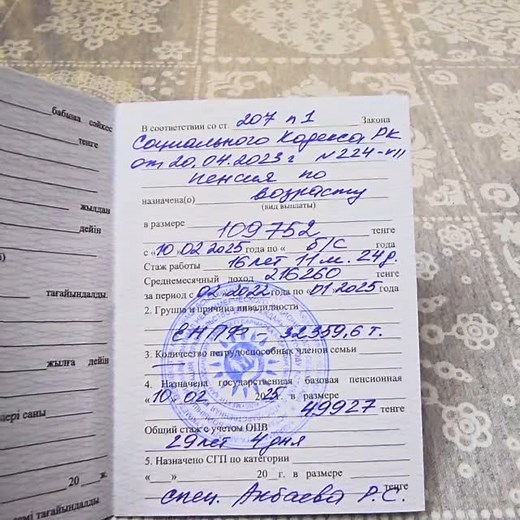 бабына сәйкес
теңге
жылдан
дейін
тағайындалды.
жылға дейін
саны
20 ж.
тағайындалды
В соответствии со ст. 207 п 1 Закона
Социального Кодекса РК
от 20.04.2023 г N 224-VII
пенсия по
назначена(о) возрасту
(вид выплаты)
в размере 109752 тенге
с «10» 02 2025 года по « б/с года
Стаж работы 16 лет 11 м. 24 д.
Среднемесячный доход 216260 тенге
за период с 02.2022 года по 01.2025
2. Группа и причина инвалидности
ЕНПФ - 32359,6 т.
3. Количество нетрудоспособных членов семьи
4. Назначена государственная базовая пенсионная
«10» 02. 2025. в размере
49927 тенге
Общий стаж с учетом ОПВ
29 лет 4 дня
5. Назначено СГП по категории
« » 20 г. в размере
тенге
спец. Акбаева Р.С.